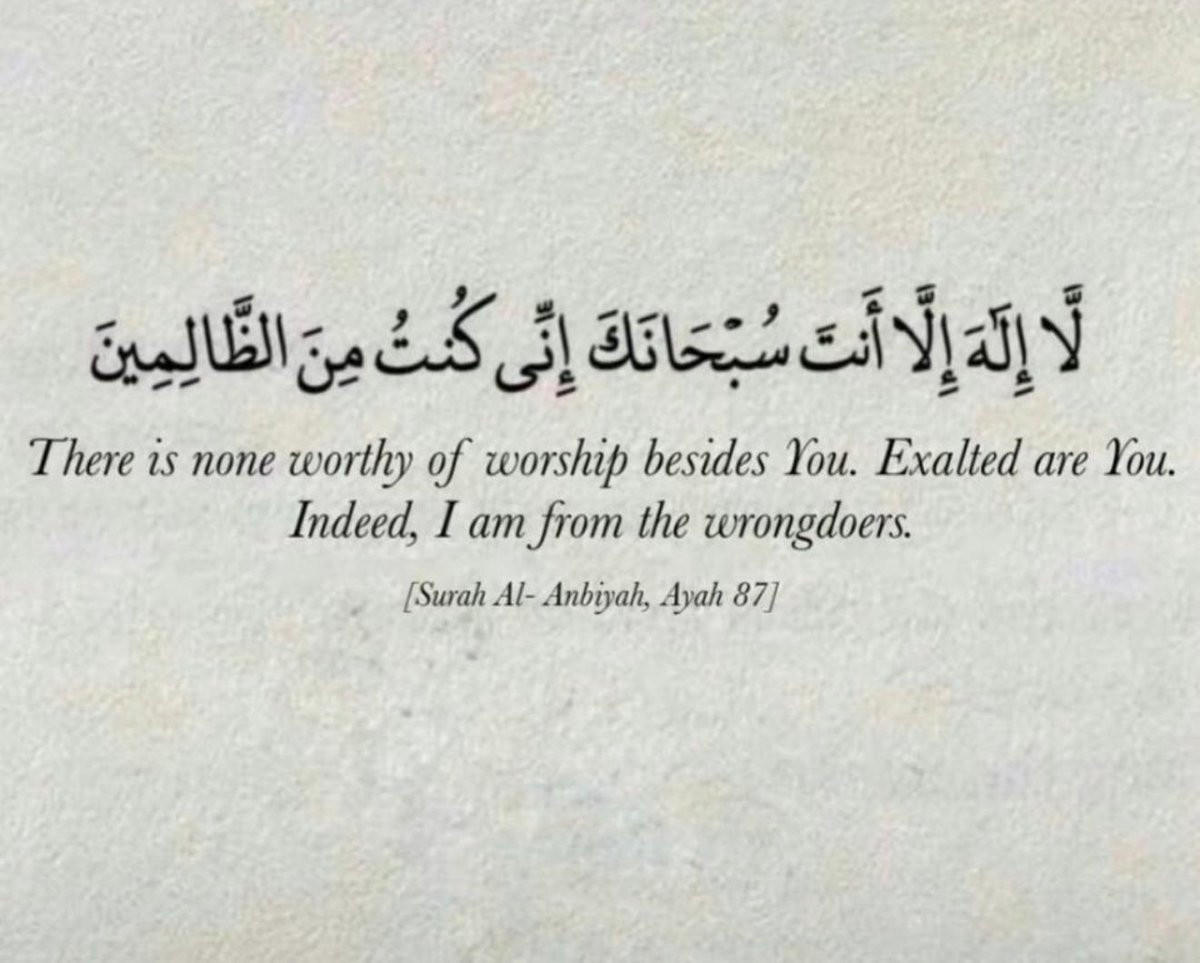 لَّا إِلَٰهَ إِلَّا أَنتَ سُبْحَانَكَ إِنِّى كُنتُ مِنَ الظَّالِمِينَ
There is none worthy of worship besides You. Exalted are You.
Indeed, I am from the wrongdoers.
[Surah Al- Anbiyah, Ayah 87]